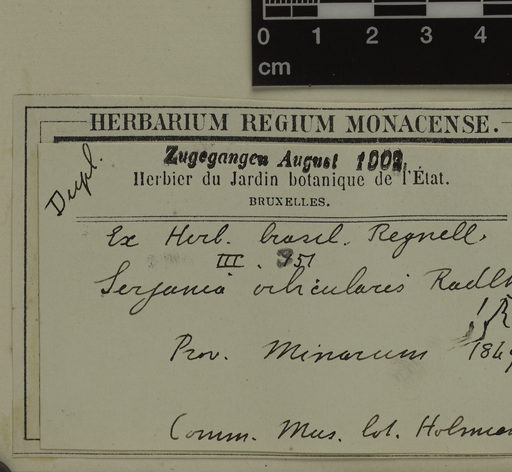 0 1 2 3 4
cm
HERBARIUM REGIUM MONACENSE.
Zugegangen August
Dupl.
Herbier du Jardin botanique de l'État.
BRUXELLES.
Ex Herb. brasil. Regnell.
III. 351
Serjania orbicularis Radlk
Prov. Minarum 184
Comm. Mus. bot. Holmien